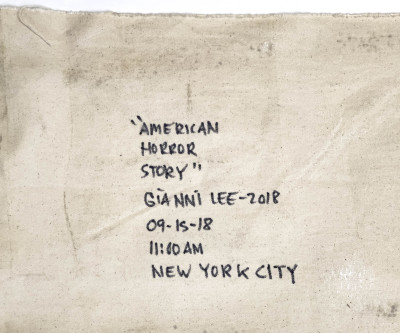 "AMERICAN
HORROR
STORY"
GIANNI LEE-2018
09-15-18
11:10AM
NEW YORK CITY